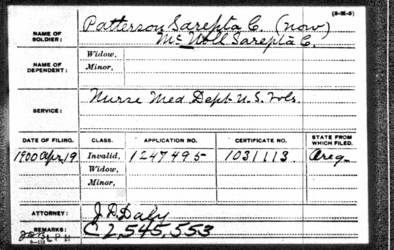 (3-06-5)
NAME OF SOLDIER: Patterson Sarepta C. (now)
McNoll Sarepta C.
NAME OF DEPENDENT: Widow,
Minor,
SERVICE: Nurse Med Dept U.S. Vols.
DATE OF FILING. CLASS. APPLICATION NO. CERTIFICATE NO. STATE FROM WHICH FILED.
1900 Apr 19 Invalid, 1247495 1031113. Oreg
Widow,
Minor,
ATTORNEY: J.D. Daly
REMARKS: C 2,545,553